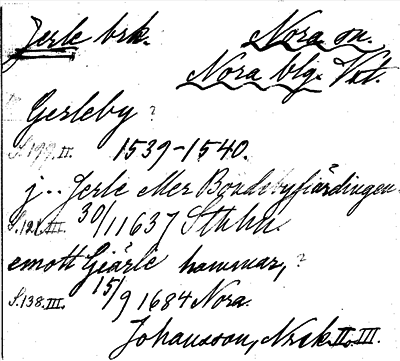 Jerle brk. Nora sn.
Nora blg. Vstl.
Gerleby ?
S. 199. II. 1539-1540.
j... Jerle eller Bondebyfiärdingen
S. 121. III. 30/1 1637 Sthlm
emott Giärle hammar, ?
S. 138. III. 15/9 1684 Nora
Johansson, Nrsk II o. III.